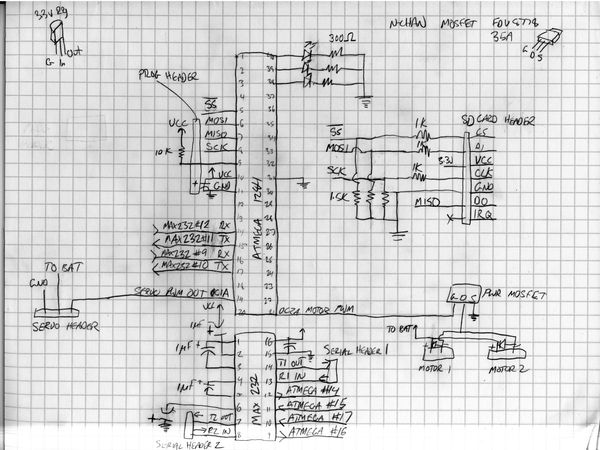 3.3V Reg
G In Out
N-CHAN MOSFET
35A
G D S
300Ω
PROG HEADER
SS
MOSI
MISO
SCK
VCC
10K
VCC
GND
ATMEGA 1284
SD CARD HEADER
SS
MOSI
SCK
1K
1K
1K
1.5K
3.3V
MISO
CS
DI
VCC
CLK
GND
DO
IRQ
MAX232 #12 RX
MAX232 #11 TX
MAX232 #9 RX
MAX232 #10 TX
TO BAT
GND
SERVO PWM OUT OC1A
SERVO HEADER
OC2A MOTOR PWM
G D S
PWR MOSFET
TO BAT
MOTOR 1
MOTOR 2
VCC
1µF
1µF
1µF
MAX 232
1
2
3
4
5
6
7
8
16
15
14
13
12
11
10
9
T1 OUT
R1 IN
SERIAL HEADER 1
ATMEGA #14
ATMEGA #15
ATMEGA #17
ATMEGA #16
T2 OUT
R2 IN
SERIAL HEADER 2